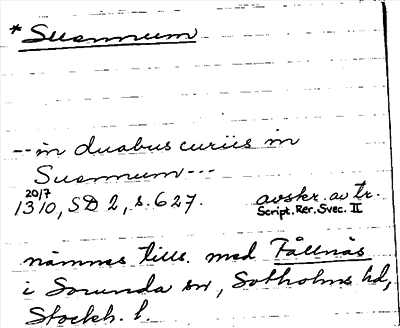 * Suennum
-- in duabus curiis in
Suennum ---
20/7
1310, SD 2, s. 627. avskr. av tr.
Script. Rer. Svec. II
nämnes tills. med Fållnäs
i Sorunda sn, Sotholms hd,
Stockh. l.